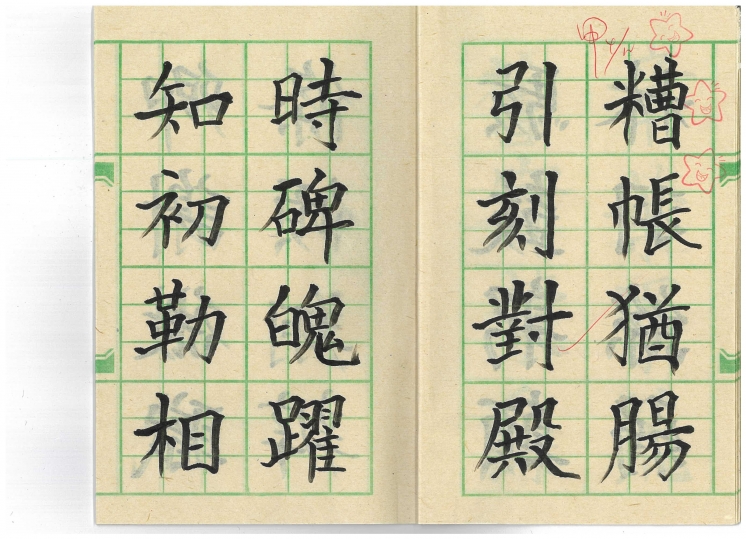 糟帳猶腸
引刻對殿
時碑魄躍
知初勒相
甲